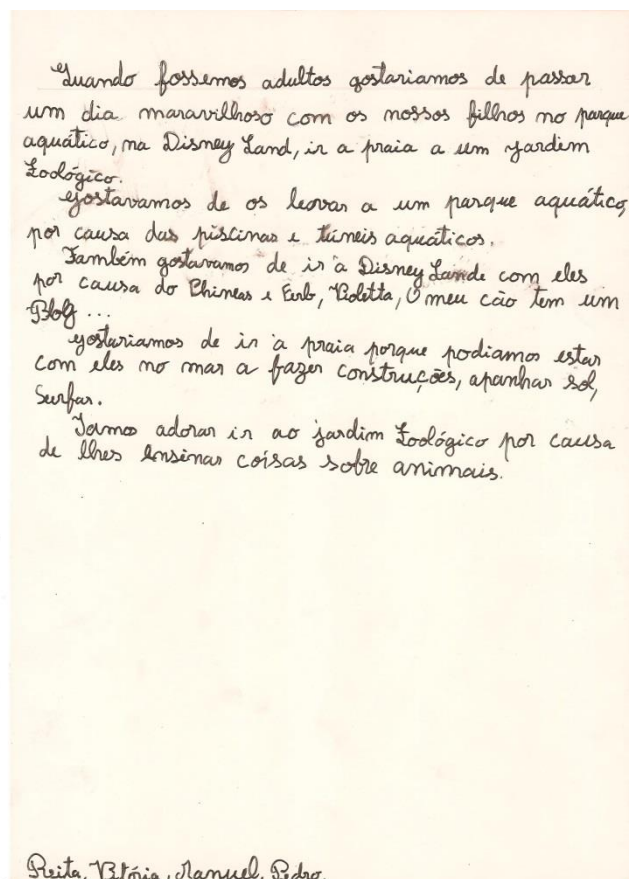 Quando fossemos adultos gostariamos de passar
um dia maravilhoso com os nossos filhos no parque
aquático, na Disney Land, ir a praia a um jardem
Zoológico.
Gostavamos de os levar a um parque aquático,
por causa das piscinas e túneis aquáticos.
Também gostavamos de ir à Disney Lande com eles
por causa do Phineas e Ferb, Violetta, O meu cão tem um
Blog ...
Gostariamos de ir à praia porque podiamos estar
com eles no mar a fazer construções, apanhar sol,
Surfar.
Iamos adorar ir ao jardim Zoológico por causa
de lhes ensinar coisas sobre animais.
Vitória, Manuel, Pedro.